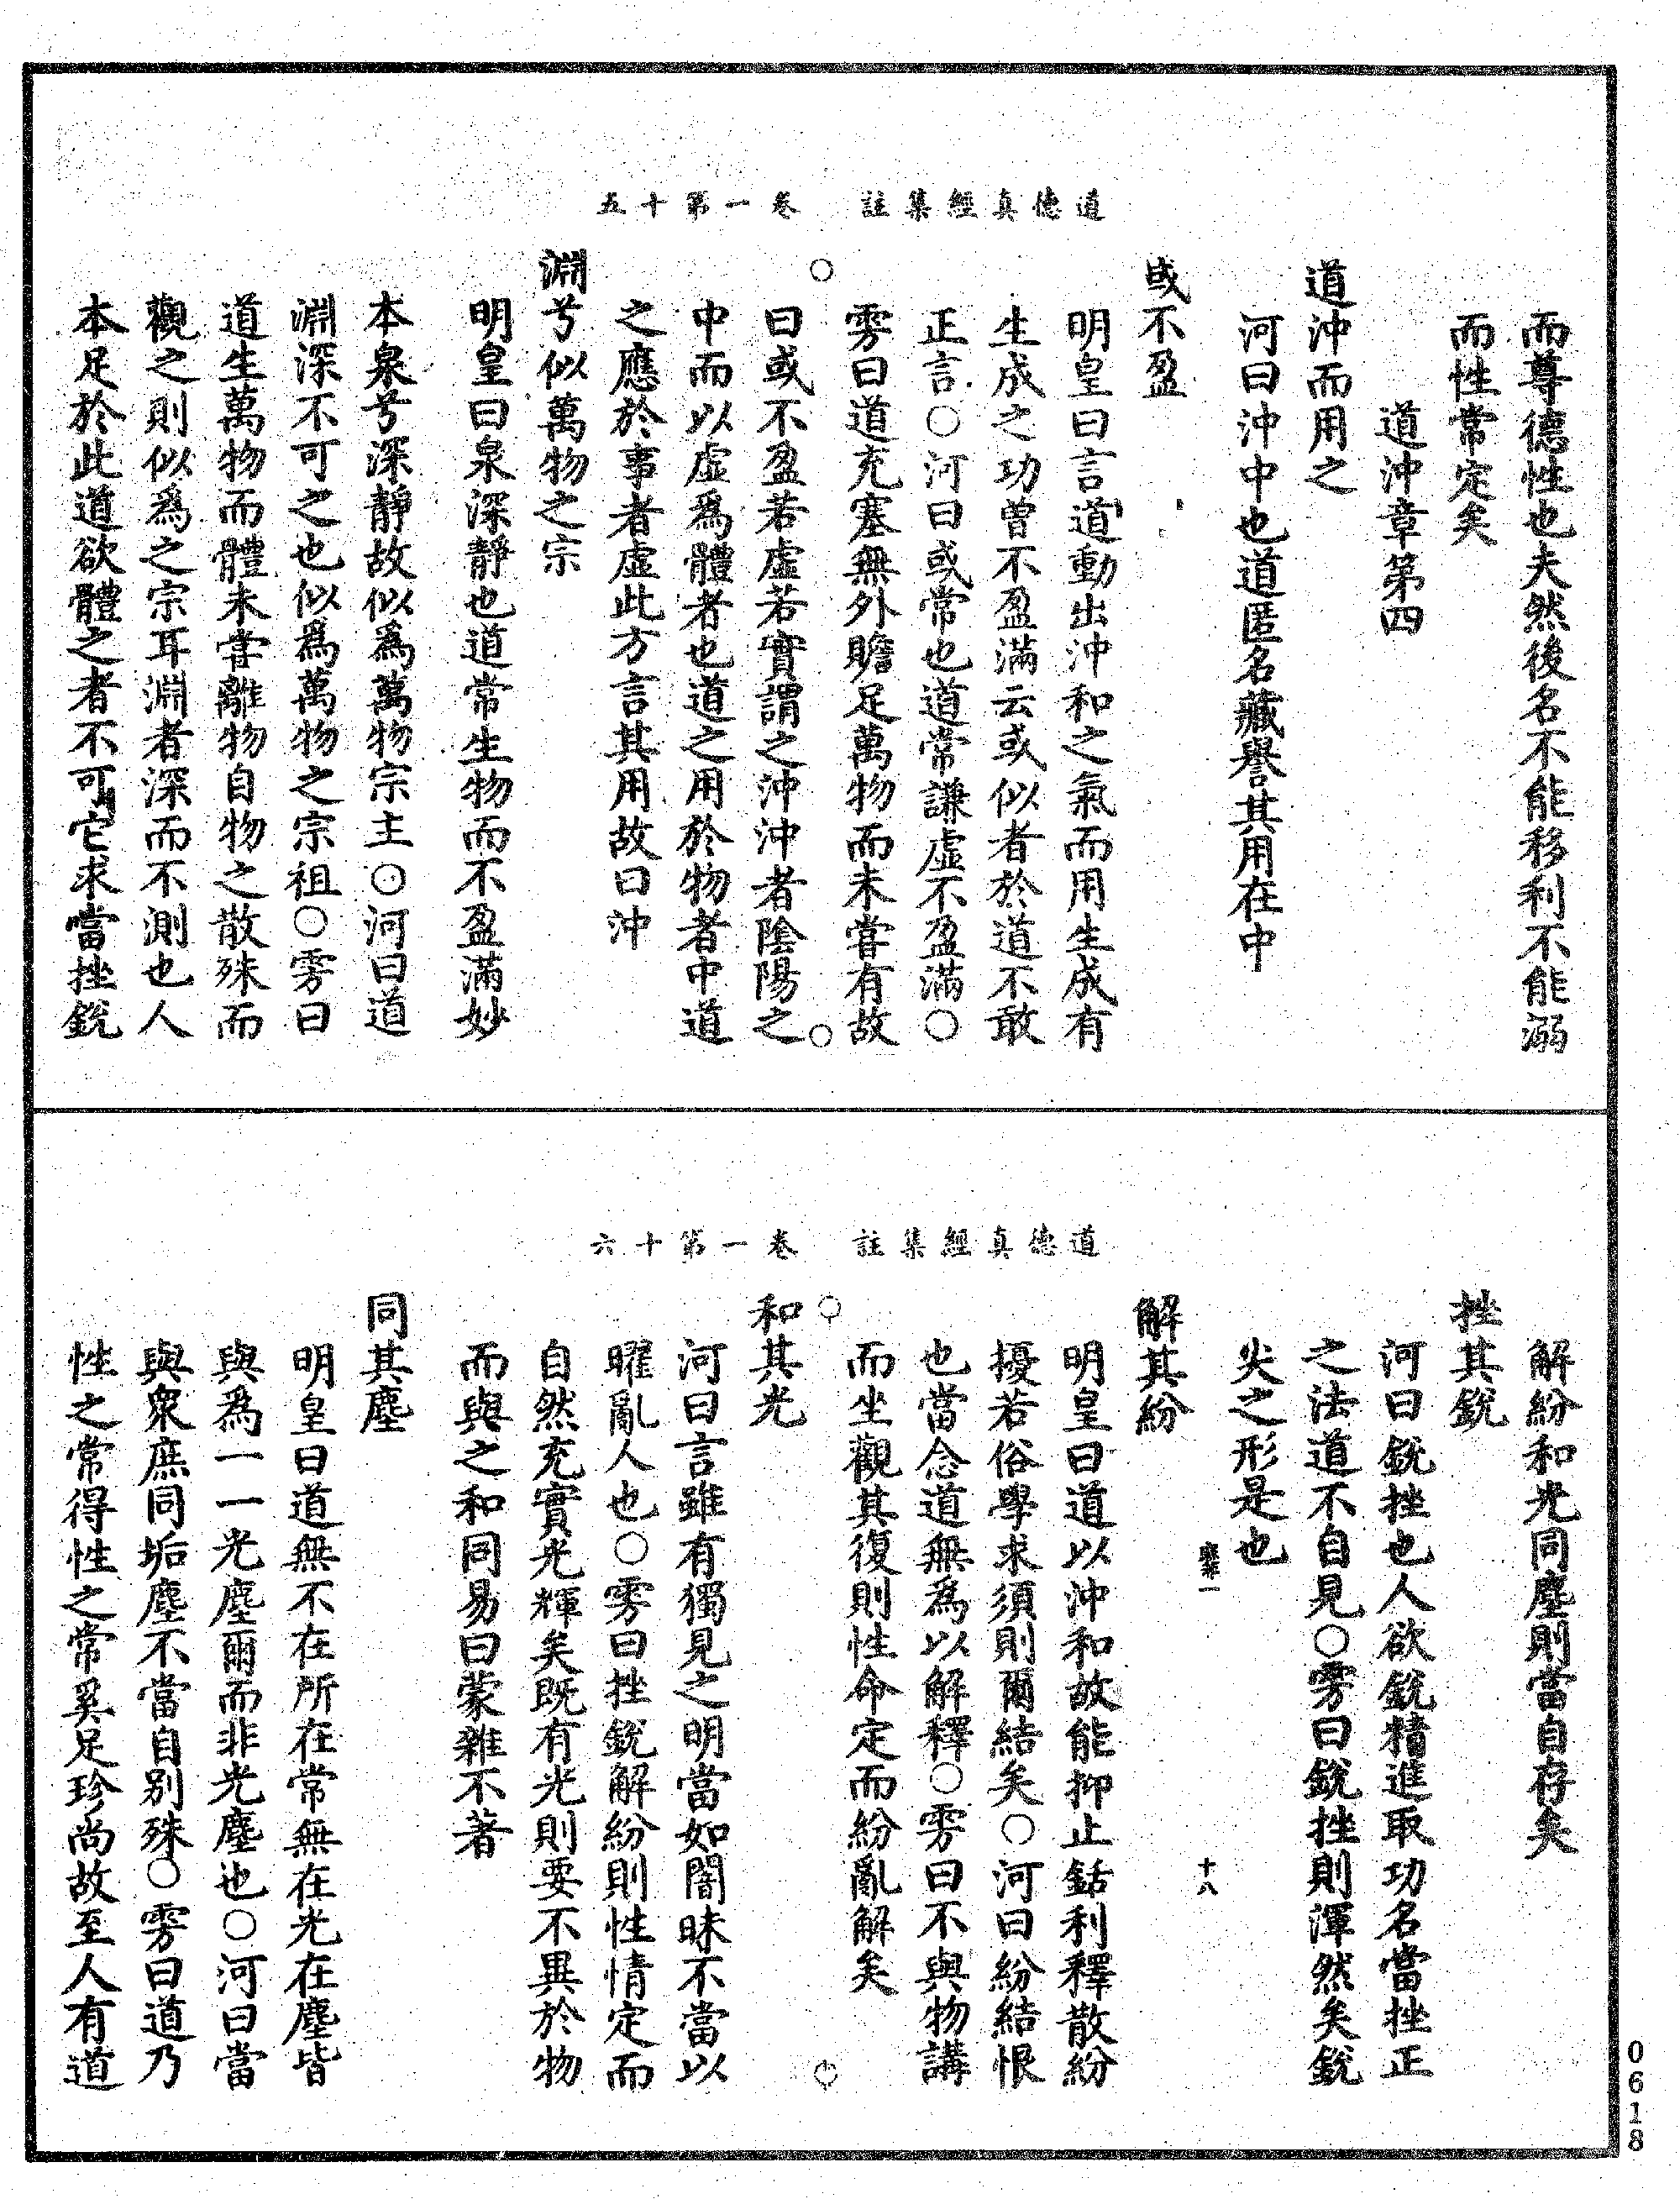 道德真經集註　卷一第十五
而尊德性也夫然後名不能移利不能溺
而性常定矣
道沖章第四
道沖而用之
河曰沖中也道匿名藏譽其用在中
或不盈
明皇曰言道動出沖和之氣而用生成有
生成之功曾不盈滿云或似者於道不敢
正言○河曰或常也道常謙虛不盈滿○
雱曰道充塞無外贍足萬物而未嘗有故
曰或不盈若虛若實謂之沖沖者陰陽之
中而以虛為體者也道之用於物者中道
之應於事者虛此方言其用故曰沖
淵兮似萬物之宗
明皇曰泉深靜也道常生物而不盈滿妙
本泉兮深靜故似為萬物宗主○河曰道
淵深不可之也似為萬物之宗祖○雱曰
道生萬物而體未嘗離物自物之散殊而
觀之則似為之宗耳淵者深而不測也人
本足於此道欲體之者不可它求當挫銳
道德真經集註　卷一第十六
解紛和光同塵則當自存矣
挫其銳
河曰銳挫也人欲銳精進取功名當挫正
之法道不自見○雱曰銳挫則渾然矣銳
尖之形是也
十八
解其紛
明皇曰道以沖和故能抑止銛利釋散紛
擾若俗學求須則爾結矣○河曰紛結恨
也當念道無為以解釋○雱曰不與物講
而坐觀其復則性命定而紛亂解矣
和其光
河曰言雖有獨見之明當如闇昧不當以
曜亂人也○雱曰挫銳解紛則性情定而
自然充實光輝矣既有光則要不異於物
而與之和同易曰蒙雜不著
同其塵
明皇曰道無不在所在常無在光在塵皆
與為一一光塵爾而非光塵也○河曰當
與衆庶同垢塵不當自別殊○雱曰道乃
性之常得性之常奚足珍尚故至人有道
0618